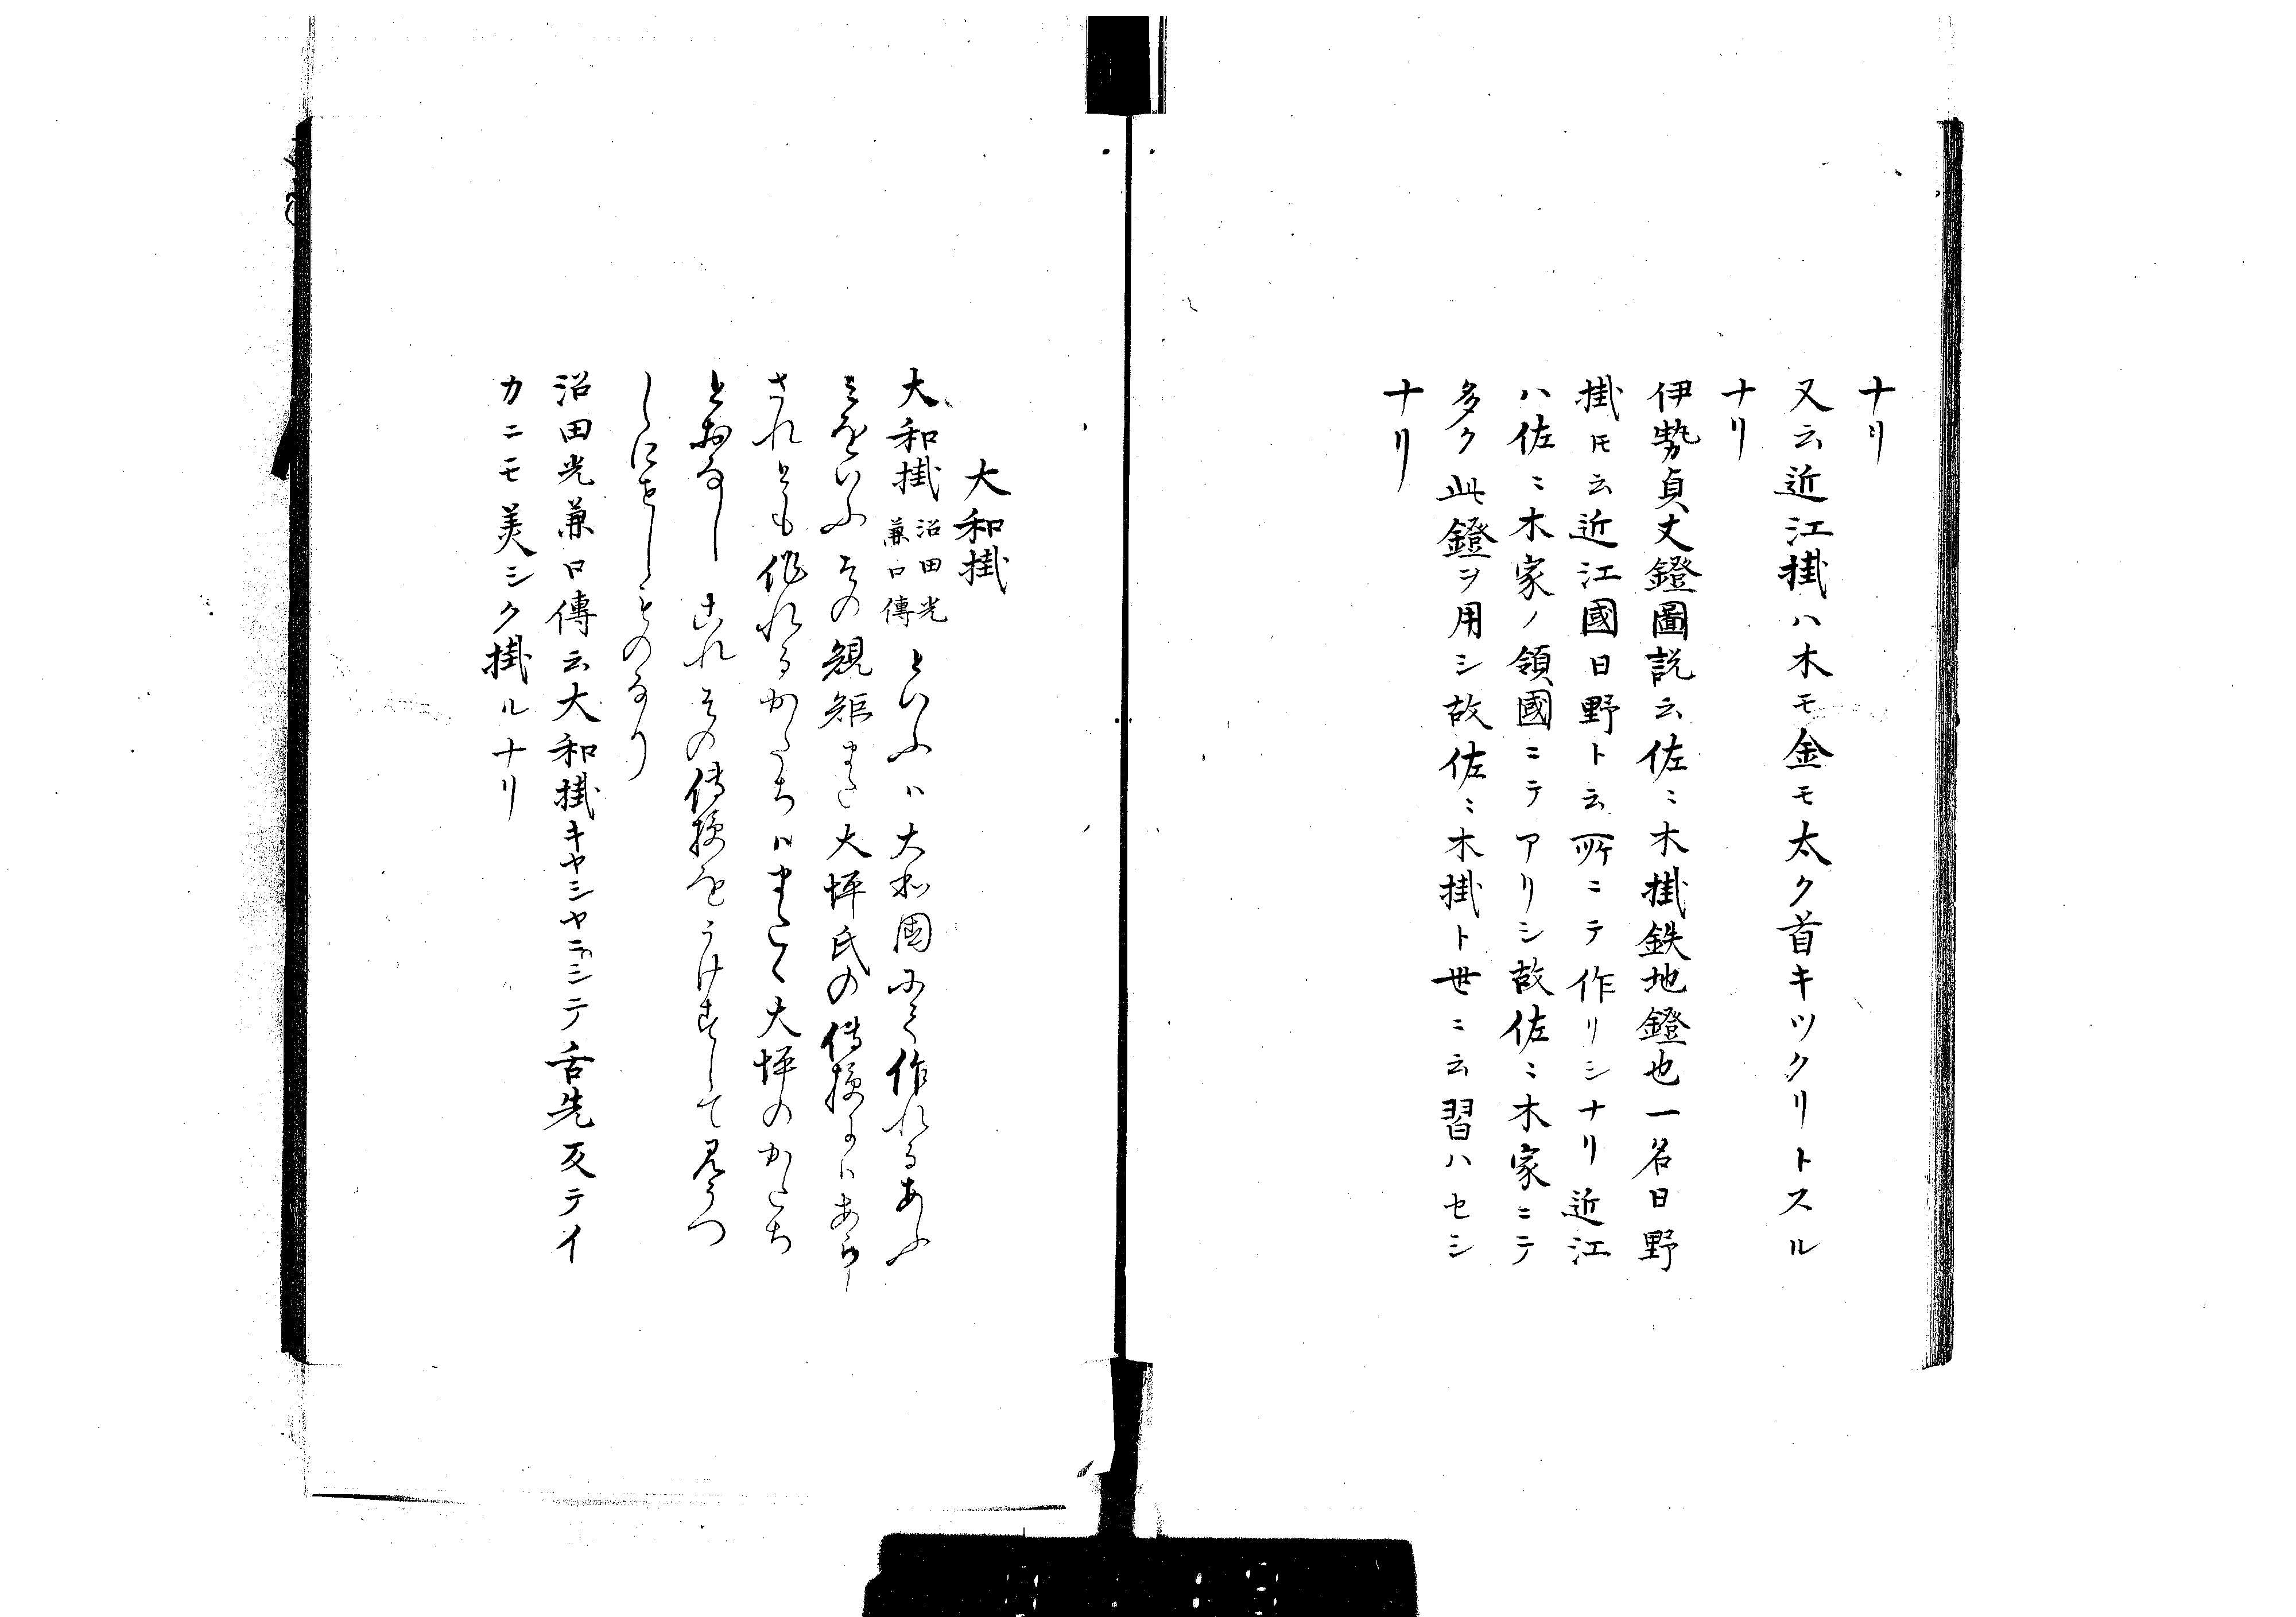 ナリ
又云近江掛ハ木モ金モ太ク首キツクリトスル
ナリ
伊勢貞丈鐙圖説云佐〻木掛鉄地鐙也一名日野
掛トモ云近江國日野ト云所ニテ作リシナリ近江
ハ佐〻木家ノ領國ニテアリシ故佐〻木家ニテ
多ク此鐙ヲ用シ故佐〻木掛ト世ニ云習ハセシ
ナリ
大和掛
大和掛沼田光兼口傳といふハ大和國にて作れるあふ
みをいふその規矩また大坪氏の傳授にあらす
されとも作れるかたちハまたく大坪のかたち
とおなしこれその傳授をうけすして見うつ
しにせしものなり
沼田光兼口傳云大和掛キヤシヤニシテ舌先反テイ
カニモ美シク掛ルナリ